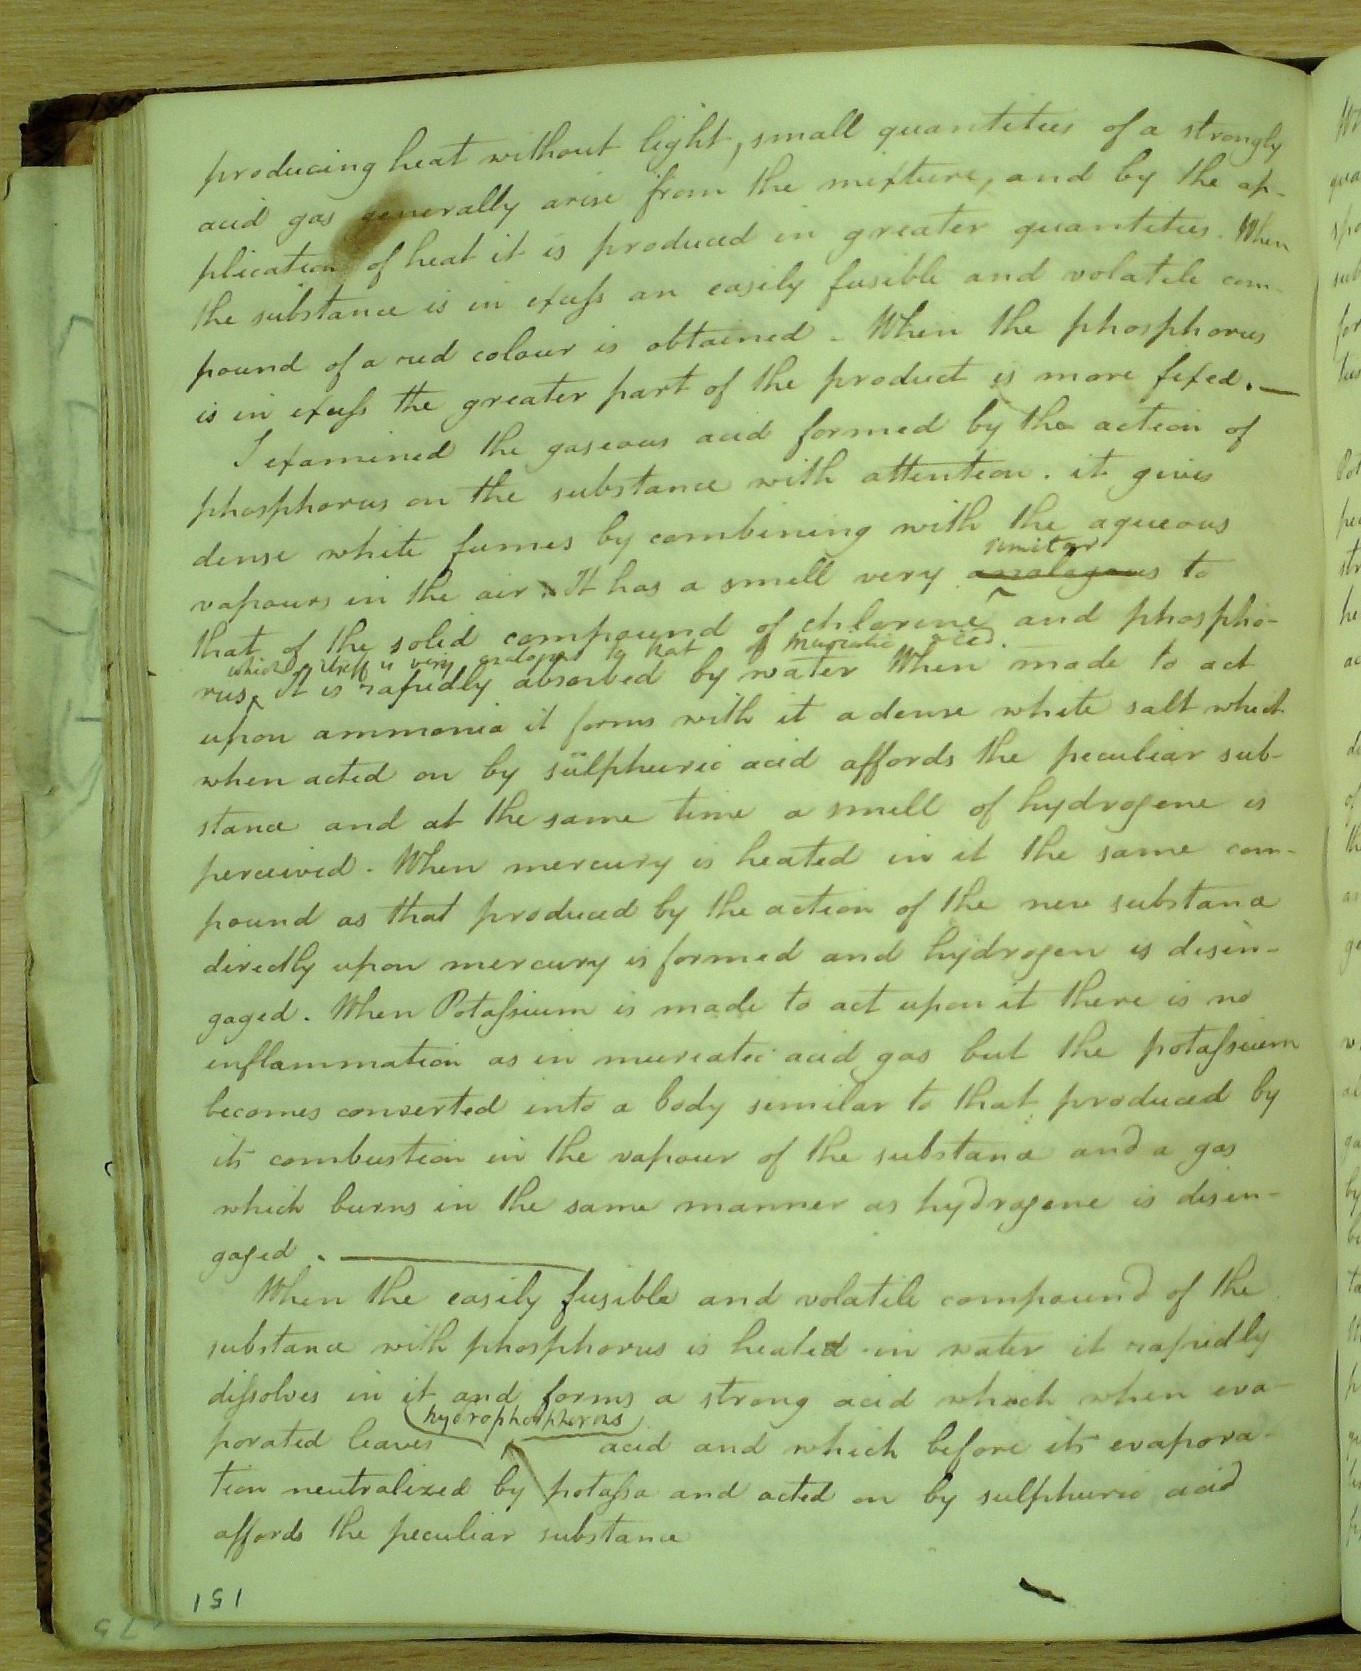 producing heat without light, small quantities of a strongly
acid gas generally arise from the mixture, and by the ap-
plication of heat it is produced in greater quantities. When
the substance is in excess an easily fusible and volatile com-
pound of a red colour is obtained - When the phosphorus
is in excess the greater part of the product is more fixed. —
I examined the gaseous acid formed by the action of
phosphorus on the substance with attention. it gives
dense white fumes by combining with the aqueous
similar
vapours in the air. It has a smell very analogous to
that of the solid compound of chlorine and phospho-
which itself is very analogous to that of muriatic acid.
rus, It is rapidly absorbed by water When made to act
upon ammonia it forms with it a dense white salt which
when acted on by sulphuric acid affords the peculiar sub-
stance and at the same time a smell of hydrogene is
perceived. When mercury is heated in it the same com-
pound as that produced by the action of the new substance
directly upon mercury is formed and hydrogen is disen-
gaged. When Potassium is made to act upon it there is no
inflammation as in muriatic acid gas but the potassium
becomes converted into a body similar to that produced by
its combustion in the vapour of the substance and a gas
which burns in the same manner as hydrogene is disen-
gaged. —
When the easily fusible and volatile compound of the
substance with phosphorus is heated in water it rapidly
dissolves in it and forms a strong acid which when eva-
hydrophosphorous
porated leaves acid and which before its evapora-
tion neutralized by potassa and acted on by sulphuric acid
affords the peculiar substance
151